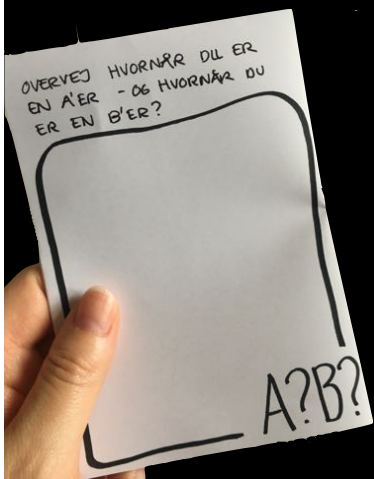 OVERVEJ HVORNÅR DU ER
EN A'ER - OG HVORNÅR DU
ER EN B'ER?
A?B?